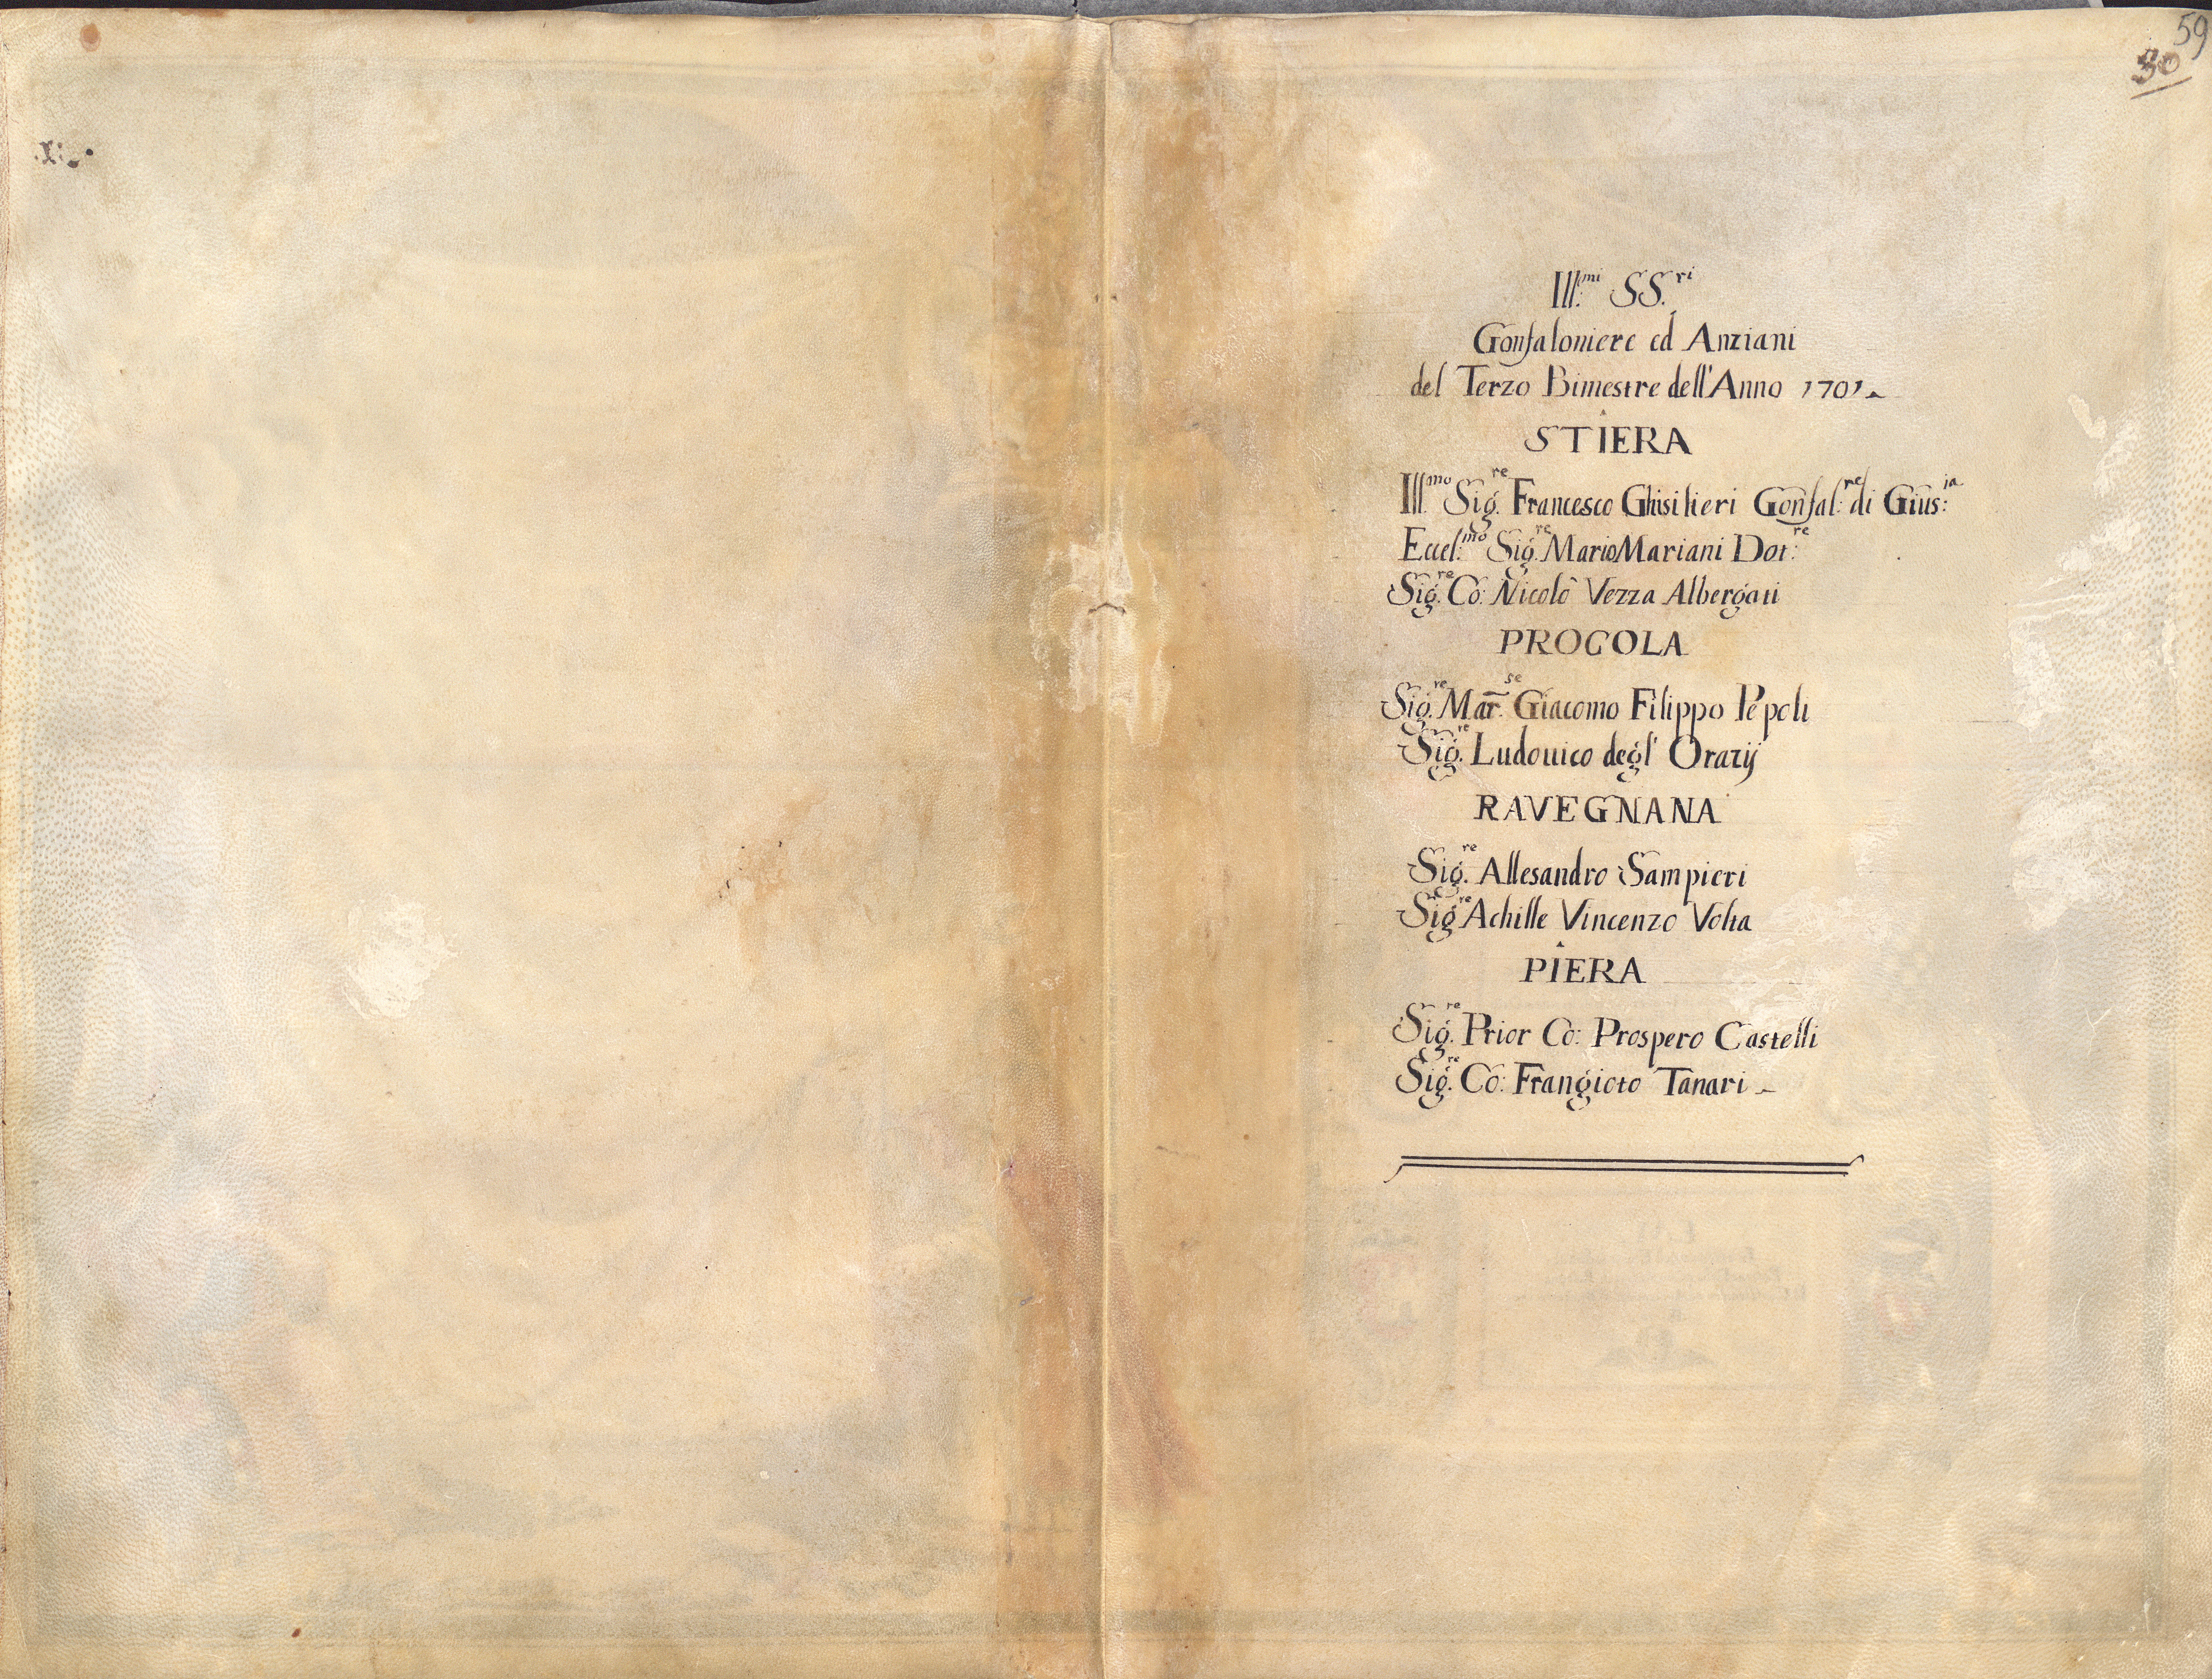 59
30
Ill.mi SS.ri
Gonfaloniere ed Anziani
del Terzo Bimestre dell'Anno 1701
STIERA
Ill.mo Sig.re Francesco Ghisilieri Gonfal:re di Gius:ia
Eccel:mo Sig.re Mario Mariani Dot:re
Sig.re Co: Nicolò Vezza Albergati
PROCOLA
Sig.re Mar.se Giacomo Filippo Pepoli
Sig.re Ludouico degl' Orazij
RAVEGNANA
Sig.re Allesandro Sampieri
Sig.re Achille Vincenzo Volta
PIERA
Sig.re Prior Co: Prospero Castelli
Sig.re Co: Frangioto Tanari